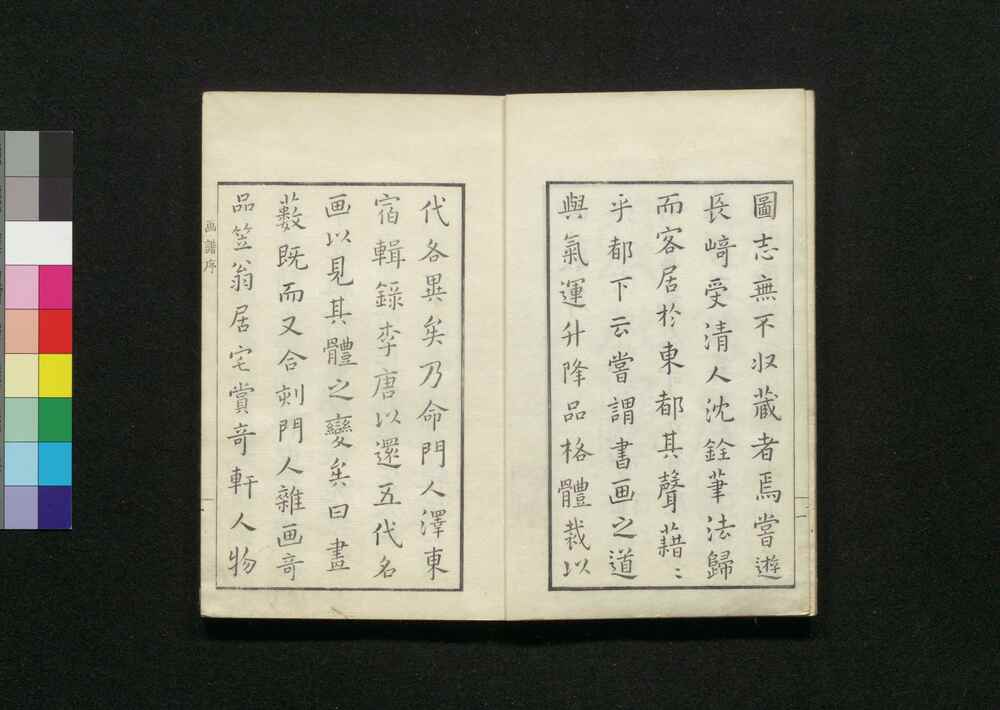 圖志無不収蔵者焉嘗遊
長﨑受清人沈銓筆法歸
而客居於東都其聲藉〻
乎都下云嘗謂書画之道
與氣運升降品格體裁以
代各異矣乃命門人澤東
宿輯錄李唐以還五代名
画以見其體之變矣曰畫
藪既而又合刻門人雜画奇
品笠翁居宅賞奇軒人物
画譜序